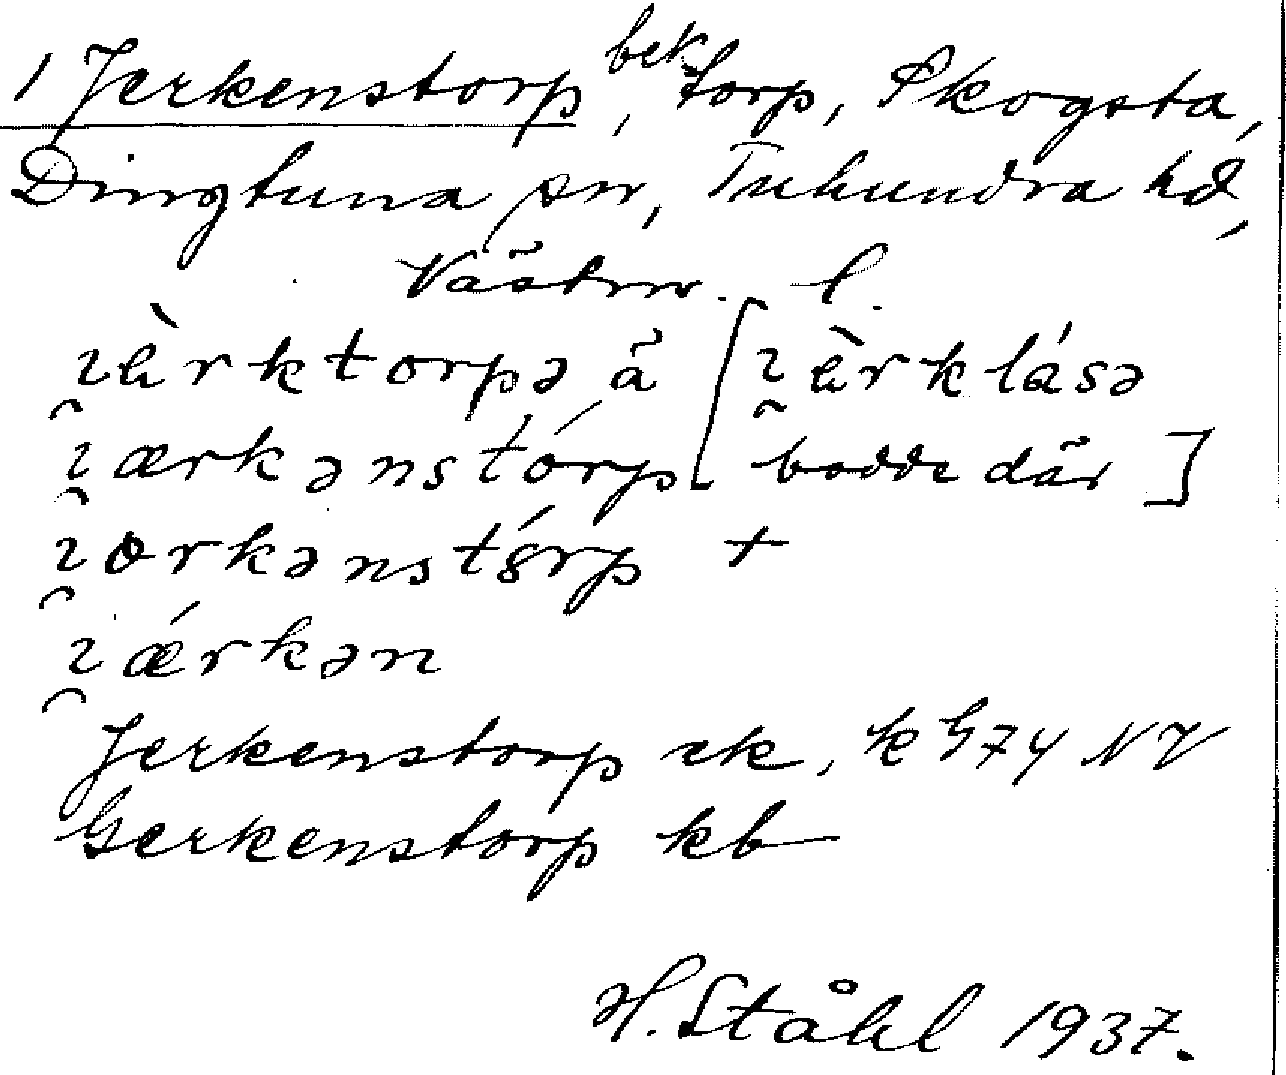 1 Jerkenstorp, bek. torp, Skogsta,
Dingtuna sn, Tuhundra hd,
Västm. l.
ı̯æ̀rktorpə ä [ı̯æ̀rklásə
ı̯ærkənstórp bodde där]
ı̯orkənstórp +
ı̯ǽrkən
Jerkenstorp ek, k G74 NV
Gerkenstorp kb
H. Ståhl 1937.